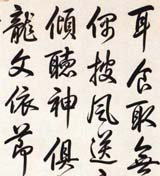 耳食取無
偶披風送
傾聽神俱
龍文依節